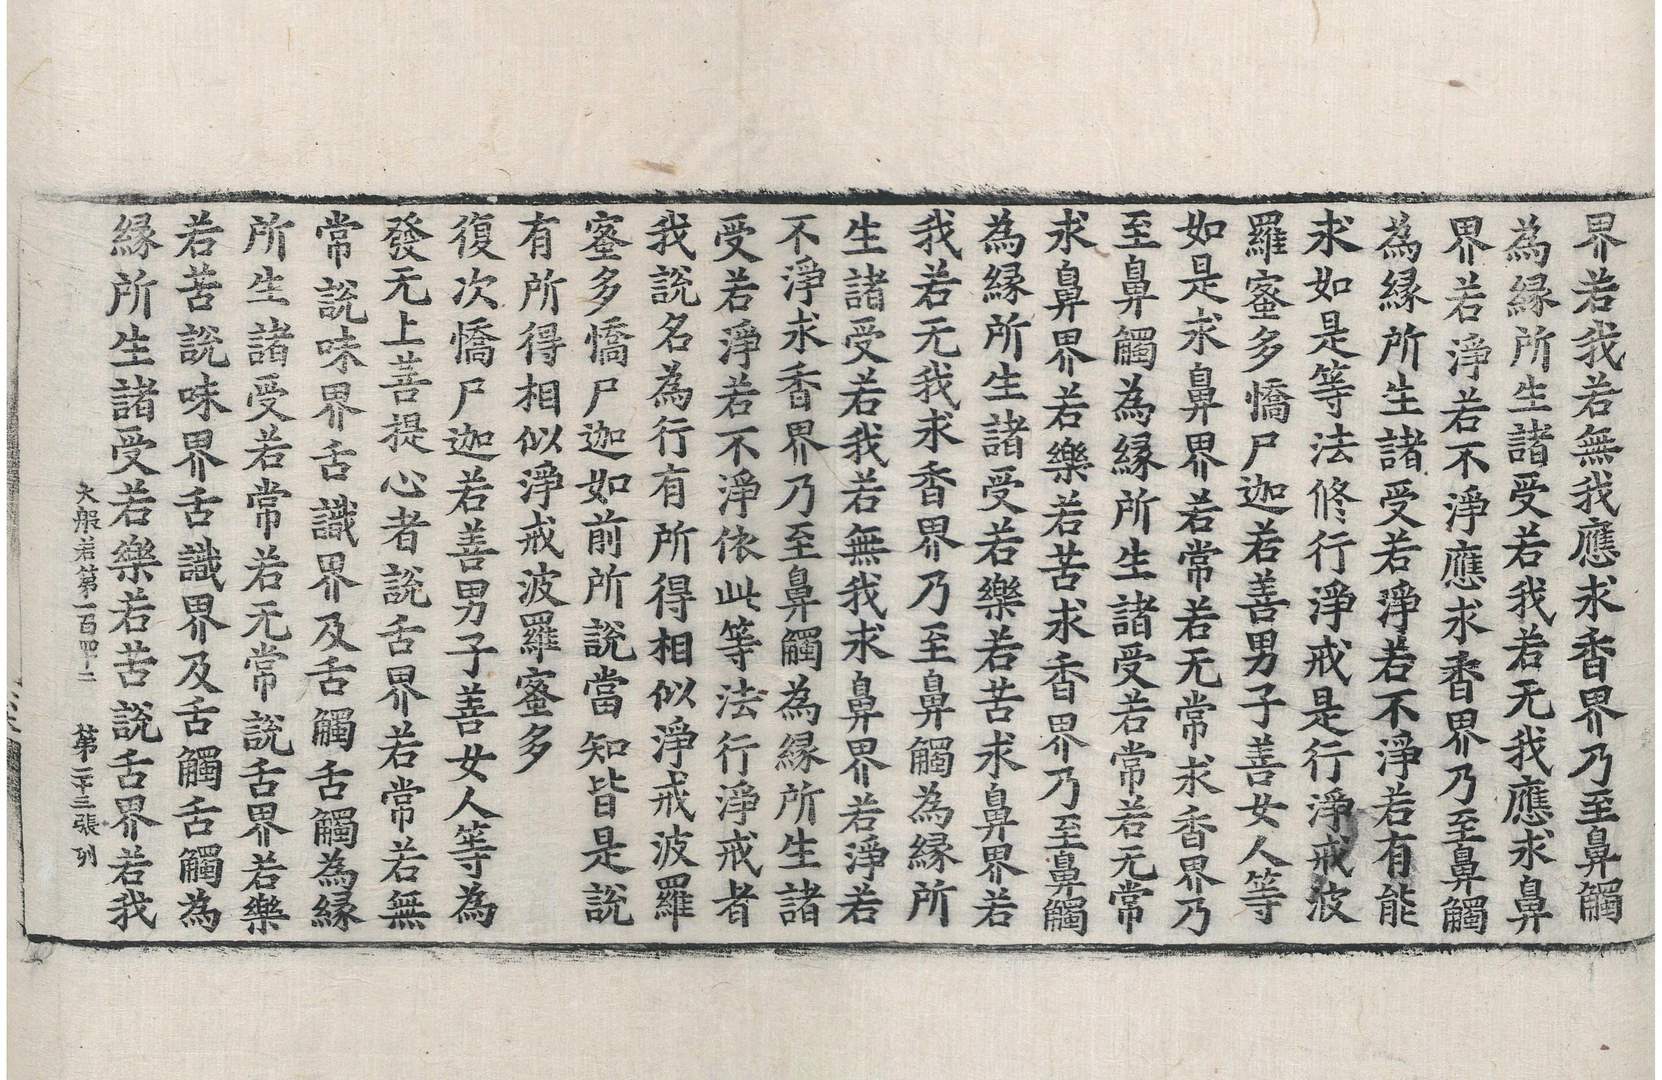 界若我若無我應求香界乃至鼻觸
為緣所生諸受若我若无我應求鼻
界若淨若不淨應求香界乃至鼻觸
為緣所生諸受若淨若不淨若有能
求如是等法修行淨戒是行淨戒波
羅蜜多憍尸迦若善男子善女人等
如是求鼻界若常若无常求香界乃
至鼻觸為緣所生諸受若常若无常
求鼻界若樂若苦求香界乃至鼻觸
為緣所生諸受若樂若苦求鼻界若
我若无我求香界乃至鼻觸為緣所
生諸受若我若無我求鼻界若淨若
不淨求香界乃至鼻觸為緣所生諸
受若淨若不淨依此等法行淨戒者
我說名為行有所得相似淨戒波羅
蜜多憍尸迦如前所說當知皆是說
有所得相似淨戒波羅蜜多
復次憍尸迦若善男子善女人等為
發无上菩提心者說舌界若常若無
常說味界舌識界及舌觸舌觸為緣
所生諸受若常若无常說舌界若樂
若苦說味界舌識界及舌觸舌觸為
緣所生諸受若樂若苦說舌界若我
大般若第一百四十二 第二十三張 列